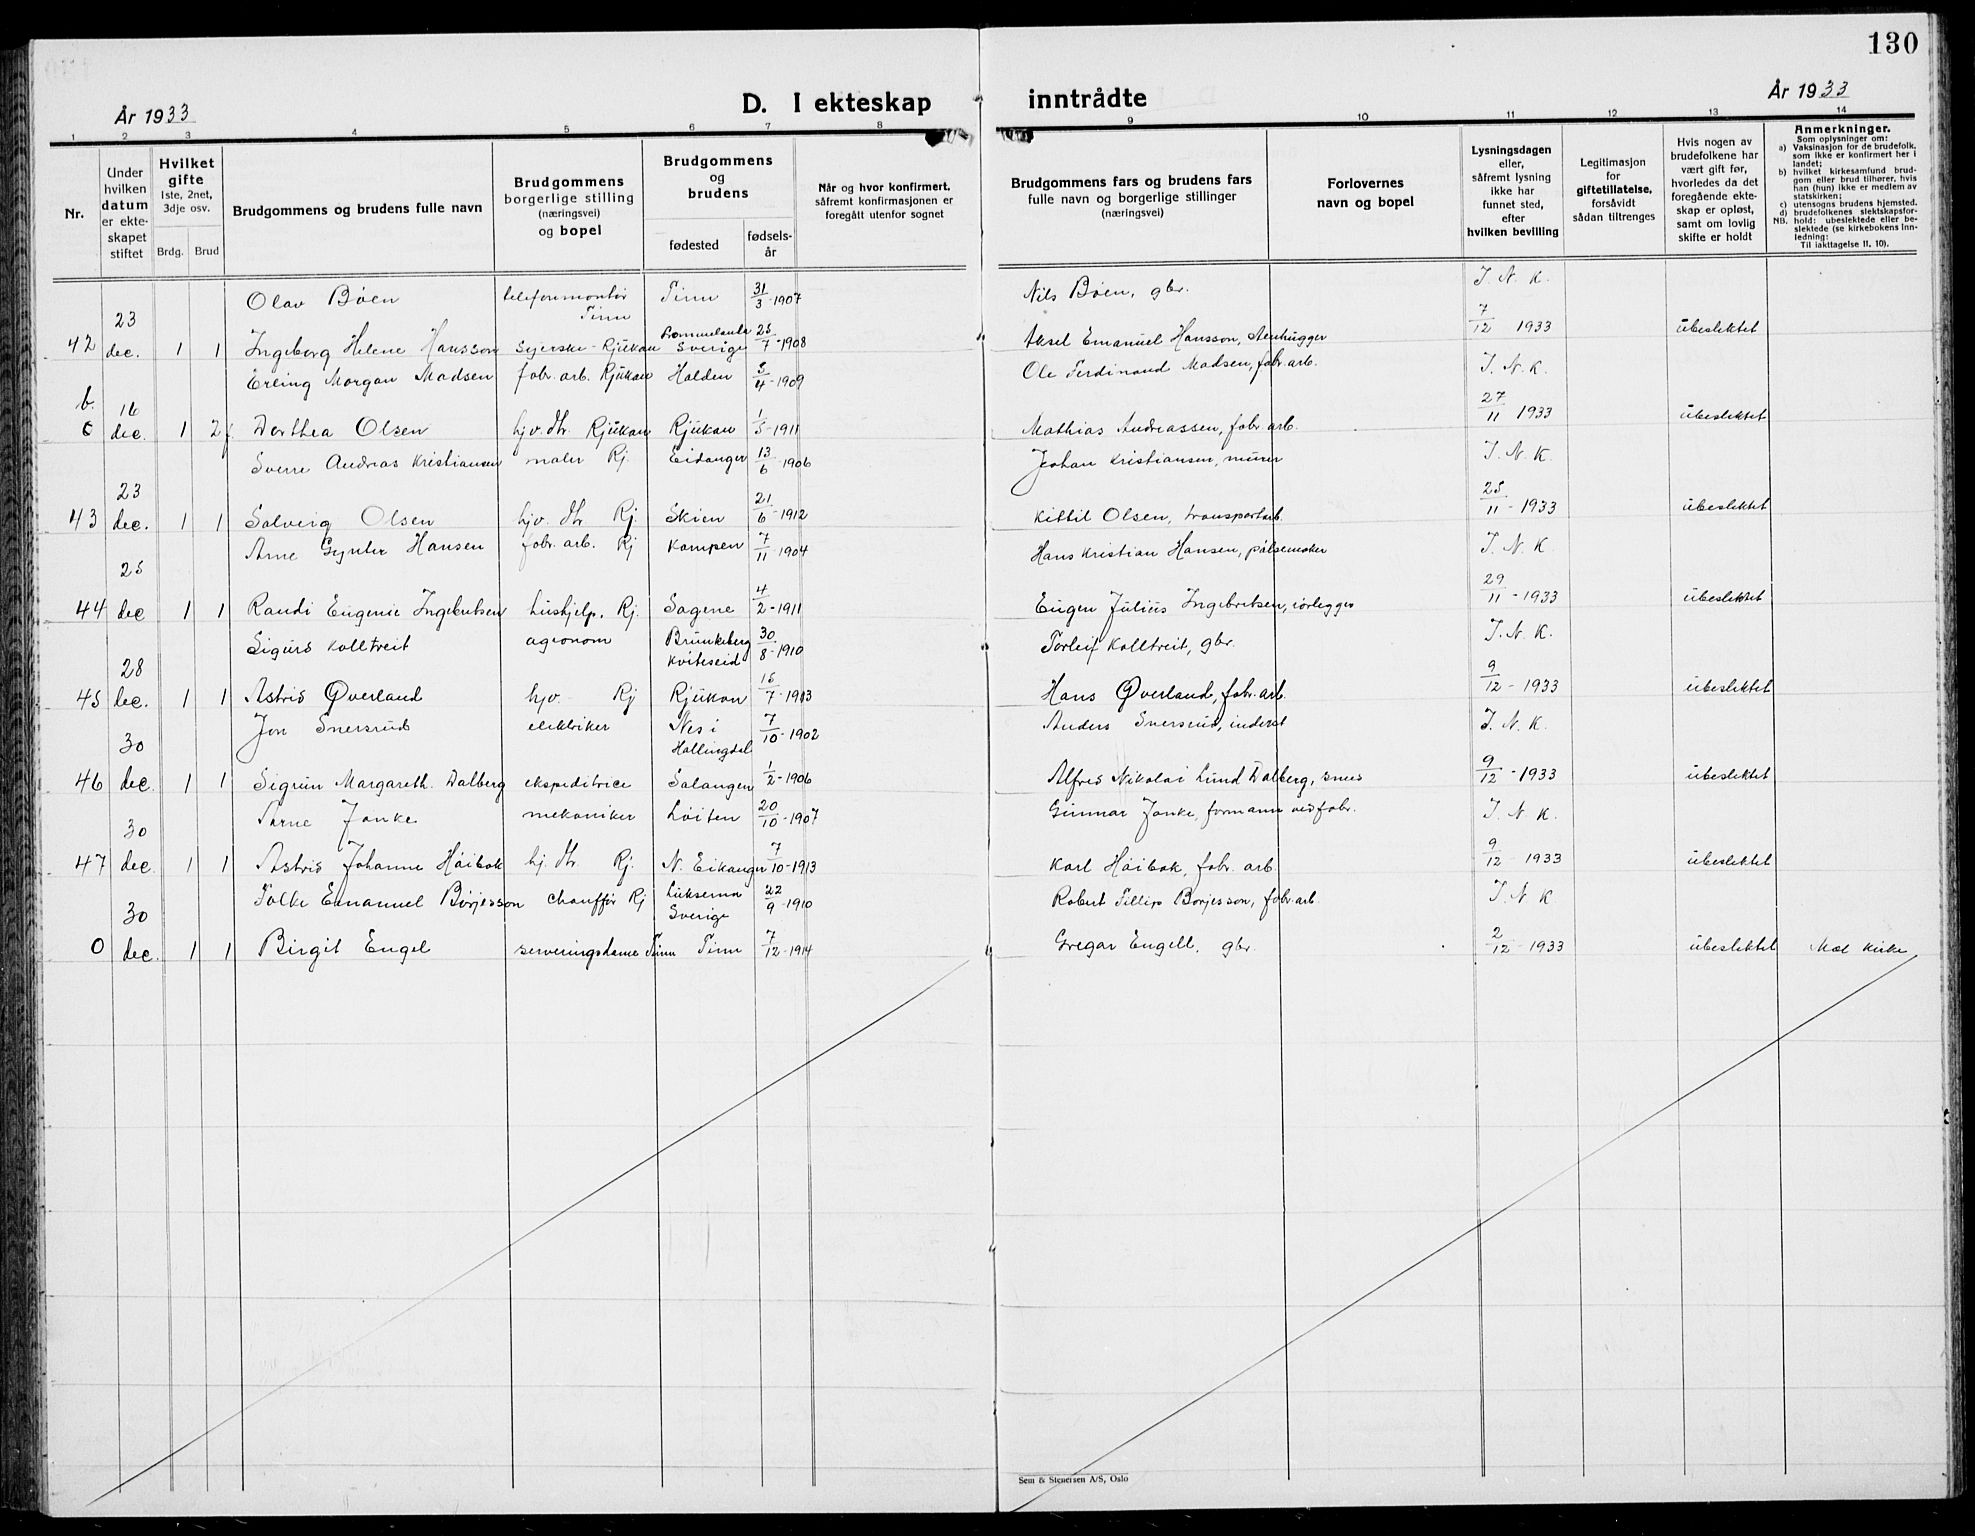 130
År 1933
D. I ekteskap inntrådte
År 1933
1 2 3 4 5 6 7 8 9 10 11 12 13 14
Nr.
Under hvilken datum er ekte- skapet stiftet
Hvilket gifte 1ste, 2net, 3dje osv.
Brdg. Brud
Brudgommens og brudens fulle navn
Brudgommens borgerlige stilling (næringsvei) og bopel
Brudgommens og brudens
fødested
fødsels- år
Når og hvor konfirmert, såfremt konfirmasjonen er foregått utenfor sognet
Brudgommens fars og brudens fars fulle navn og borgerlige stillinger (næringsvei)
Forlovernes navn og bopel
Lysningsdagen eller, såfremt lysning ikke har funnet sted, efter hvilken bevilling
Legitimasjon for giftetillatelse, forsåvidt sådan tiltrenges
Hvis nogen av brudefolkene har vært gift før, hvorledes da det foregående ekte- skap er opløst, samt om lovlig skifte er holdt
Anmerkninger.
Som oplysninger om:
a) Vaksinasjon for de brudefolk, som ikke er konfirmert her i landet;
b) hvilket kirkesamfund brud- gom eller brud tilhører, hvis han (hun) ikke er medlem av statskirken;
c) utensogns brudens hjemsted.
d) brudefolkenes slektskapsfor- hold: ubeslektede eller be- slektede (se kirkebokens inn- ledning:
NB. Til iakttagelse II. 10).
Olav Bøen telefonmontør Tinn Tinn 31/3-1907 Nils Bøen, gbr. I. N. K.
42 23 dec. 1 1 Ingeborg Helene Hansson syerske - Rjukan Sverige 25/7-1908 Aksel Emanuel Hansson, stenhugger 7/12 1933 ubeslektet
Erling Morgan Madsen fabr. arb. Rjukan Halden 3/4-1909 Ole Ferdinand Madsen, fabr. arb. I. N. K.
b. 16 dec. 1 2 Dorthea Olsen hjv. dtr. Rjukan Rjukan 1/5-1911 Mathias Andreassen, fabr. arb. 27/11 1933 ubeslektet
Sverre Andreas Kristiansen maler Rj. Eidanger 13/6-1906 Johan Kristiansen, murer I. N. K.
43 23 dec. 1 1 Solveig Olsen hjv. dtr. Rj. Skien 21/6-1912 Kittil Olsen, transportarb. 25/11-1933 ubeslektet
Arne Gynter Hansen fabr. arb. Rj Kampen 7/11-1904 Hans Kristian Hansen, pølsemaker I. N. K
44 25 dec 1 1 Randi Eugenie Ingebretsen hushjelp. Rj. Sagene 4/2-1911 Eugen Julius Ingebretsen, rørlegger 29/11-1933 ubeslektet
Sigurd Kolltveit agronom Brunkeberg Kviteseid 30/8-1910 Torleif Kolltveit, gbr. I. N. K.
45 28 dec. 1 1 Astrid Øverland hjv. Rj Rjukan 15/7-1913 Hans Øverland, fabr. arb. 9/12-1933 ubeslektet
Jon Snersrud elektriker Nes i Hallingdal 7/10-1902 Anders Snersrud, inderst I. N. K.
46 30 dec. 1 1 Sigrun Margareth. Dalberg ekspeditrice Salangen 1/2-1906 Alfred Nikolai Lund Dalberg, 9/12-1933 ubeslektet
Arne Janke mekaniker Løiten 20/10-1907 Gunnar Janke, formann ved fabr. I. N. K.
47 30 dec. 1 1 Astrid Johanne Høibak hj. dtr. Rj. N. Eikanger 7/10-1913 Karl Høibak, fabr. arb. 9/12-1933 ubeslektet
Folke Emanuel Børjesson chauffør Rj Sverige 22/9-1910 Robert Fillip Børjesson, fabr. arb. I. N. K
0 30 dec. 1 1 Birgit Engel serveringsdame Tinn Tinn 7/12-1914 Gregar Engell, gbr. 2/12-1933 ubeslektet Mæl kirke
Sem & Stenersen A/S, Oslo